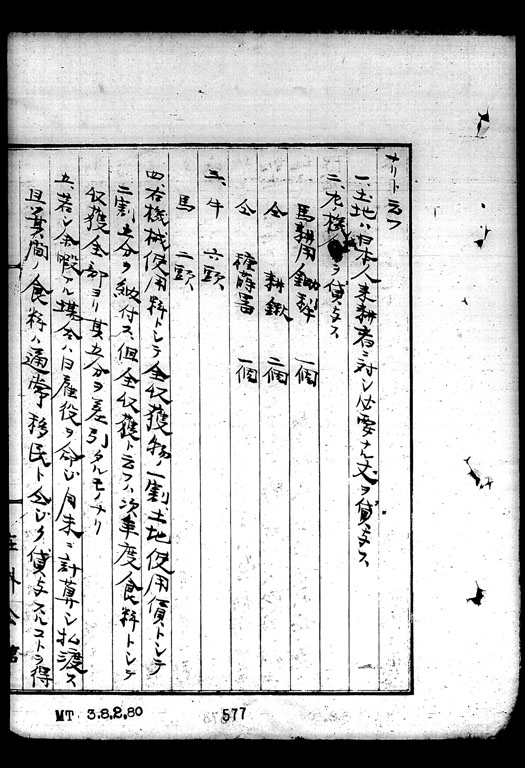 ナリト云フ
一、土地ハ日本人来耕者ニ対シ必要ナル丈ヲ貸与ス
二、左機ヲ貸与ス
馬耕用鋤犂 一個
仝 耕鍬 二個
仝 種蒔器 一個
三、牛 六頭
馬 二頭
四、右機械使用料トシテ全収獲物ノ一割土地使用價トシテ
二割五分ヲ納付ス但全収獲ト云フハ次年度食料トシテ
収獲全部ヨリ其五分ヲ差引タルモノナリ
五、若シ余暇アル場合ハ日雇役ヲ命ジ月末ニ計算シ払渡ス
且其間ノ食料ハ通常移民ト仝ジク貸与スルコトヲ得
在外公館
MT 3.8.2.80
577